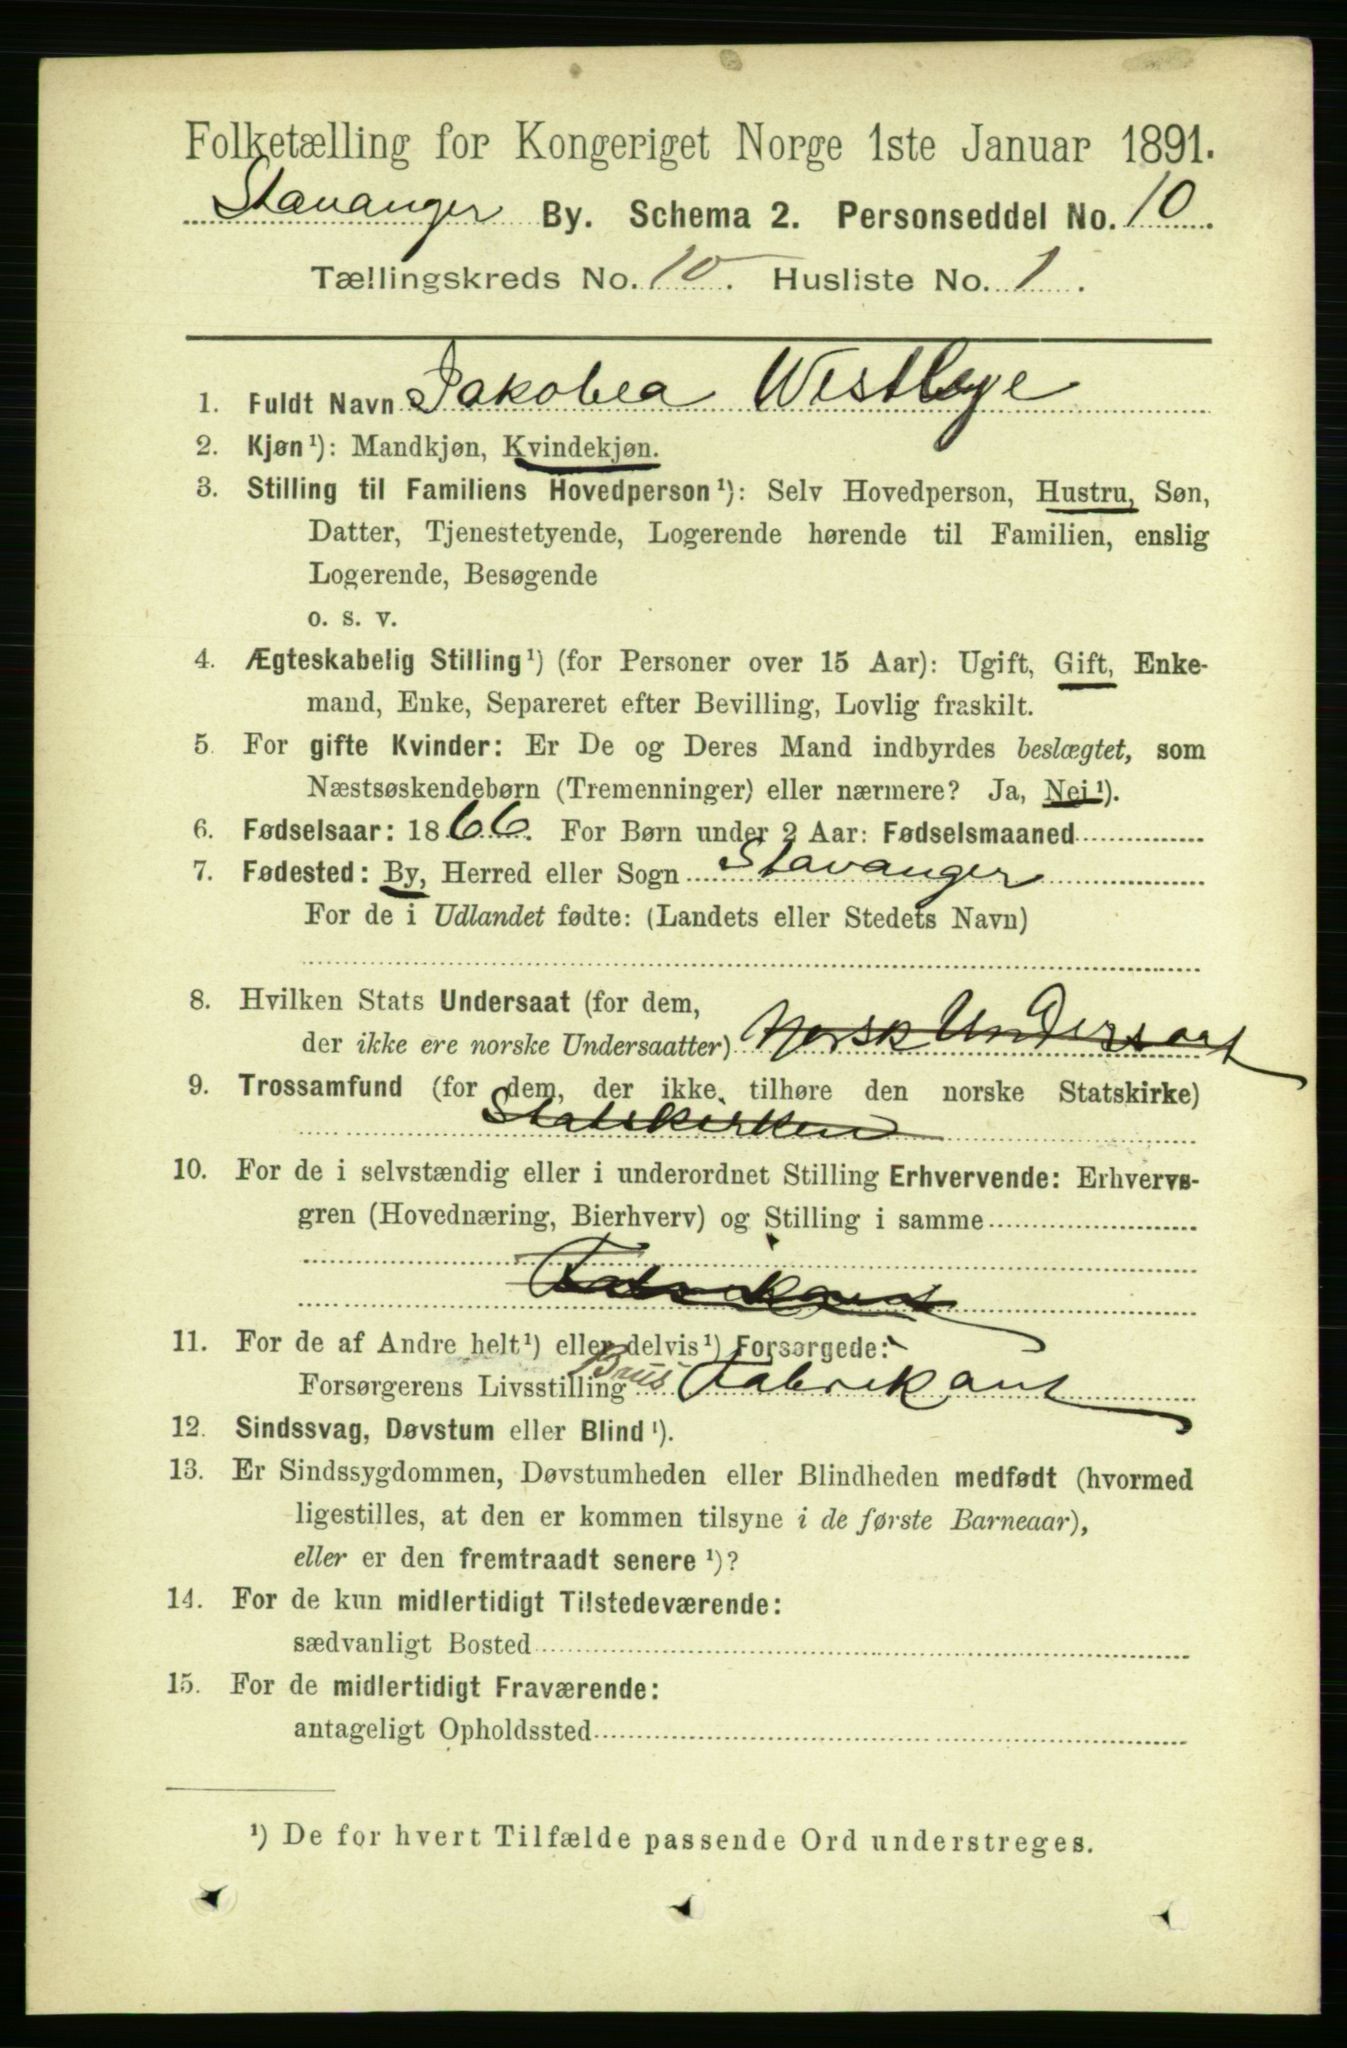 Folketælling for Kongeriget Norge 1ste Januar 1891.
Stavanger By. Schema 2. Personseddel No. 10
Tællingskreds No. 10. Husliste No. 1.
1. Fuldt Navn Jakobea Westbye
2. Kjøn¹): Mandkjøn, Kvindekjøn.
3. Stilling til Familiens Hovedperson¹): Selv Hovedperson, Hustru, Søn,
Datter, Tjenestetyende, Logerende hørende til Familien, enslig
Logerende, Besøgende
o. s. v.
4. Ægteskabelig Stilling¹) (for Personer over 15 Aar): Ugift, Gift, Enke-
mand, Enke, Separeret efter Bevilling, Lovlig fraskilt.
5. For gifte Kvinder: Er De og Deres Mand indbyrdes beslægtet, som
Næstsøskendebørn (Tremenninger) eller nærmere? Ja, Nei¹).
6. Fødselsaar: 1866. For Børn under 2 Aar: Fødselsmaaned
7. Fødested: By, Herred eller Sogn Stavanger
For de i Udlandet fødte: (Landets eller Stedets Navn)
8. Hvilken Stats Undersaat (for dem,
der ikke ere norske Undersaatter) Norsk Undersaat
9. Trossamfund (for dem, der ikke tilhøre den norske Statskirke)
Statskirken
10. For de i selvstændig eller i underordnet Stilling Erhvervende: Erhvervs-
gren (Hovednæring, Bierhverv) og Stilling i samme
Fabrikant
11. For de af Andre helt¹) eller delvis¹) Forsørgede:
Forsørgerens Livsstilling Brus Fabrikant
12. Sindssvag, Døvstum eller Blind¹).
13. Er Sindssygdommen, Døvstumheden eller Blindheden medfødt (hvormed
ligestilles, at den er kommen tilsyne i de første Barneaar),
eller er den fremtraadt senere¹)?
14. For de kun midlertidigt Tilstedeværende:
sædvanligt Bosted
15. For de midlertidigt Fraværende:
antageligt Opholdssted
¹) De for hvert Tilfælde passende Ord understreges.